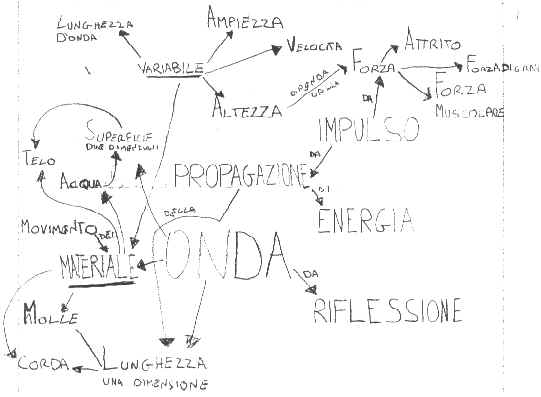 LUNGHEZZA
D'ONDA
AMPIEZZA
VARIABILE
VELOCITA
ALTEZZA
FORZA
ATTRITO
FORZA
MUSCOLARE
DA
IMPULSO
SUPERFICIE
DUE DIMENSIONI
TELO
ACQUA
PROPAGAZIONE
DA
DI
ENERGIA
DELLA
MOVIMENTO
DEL
MATERIALE
ONDA
DA
RIFLESSIONE
MOLLE
CORDA
LUNGHEZZA
UNA DIMENSIONE